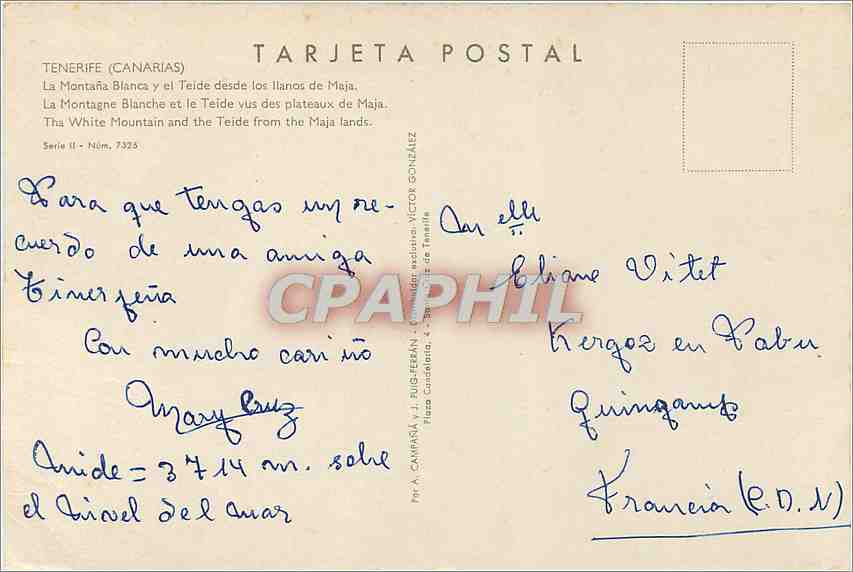 TARJETA POSTAL
TENERIFE (CANARIAS)
La Montaña Blanca y el Teide desde los llanos de Maja.
La Montagne Blanche et le Teide vus des plateaux de Maja.
Tha White Mountain and the Teide from the Maja lands.
Serie II - Núm. 7325
Para que tengas un re-
cuerdo de una amiga
tinerfeña
Con mucho cariño
Mary Cruz
Mide = 3714 m. sobre
el nivel del mar
Por A. CAMPAÑÁ y J. PUIG-FERRÁN - Distribuidor exclusivo: VÍCTOR GONZÁLEZ
Plaza Candelaria, 4 - Santa Cruz de Tenerife
CPAPHIL
elle
Eliane Vitet
Kergoz en Pabu
Guingamp
Francia (C.D.N)